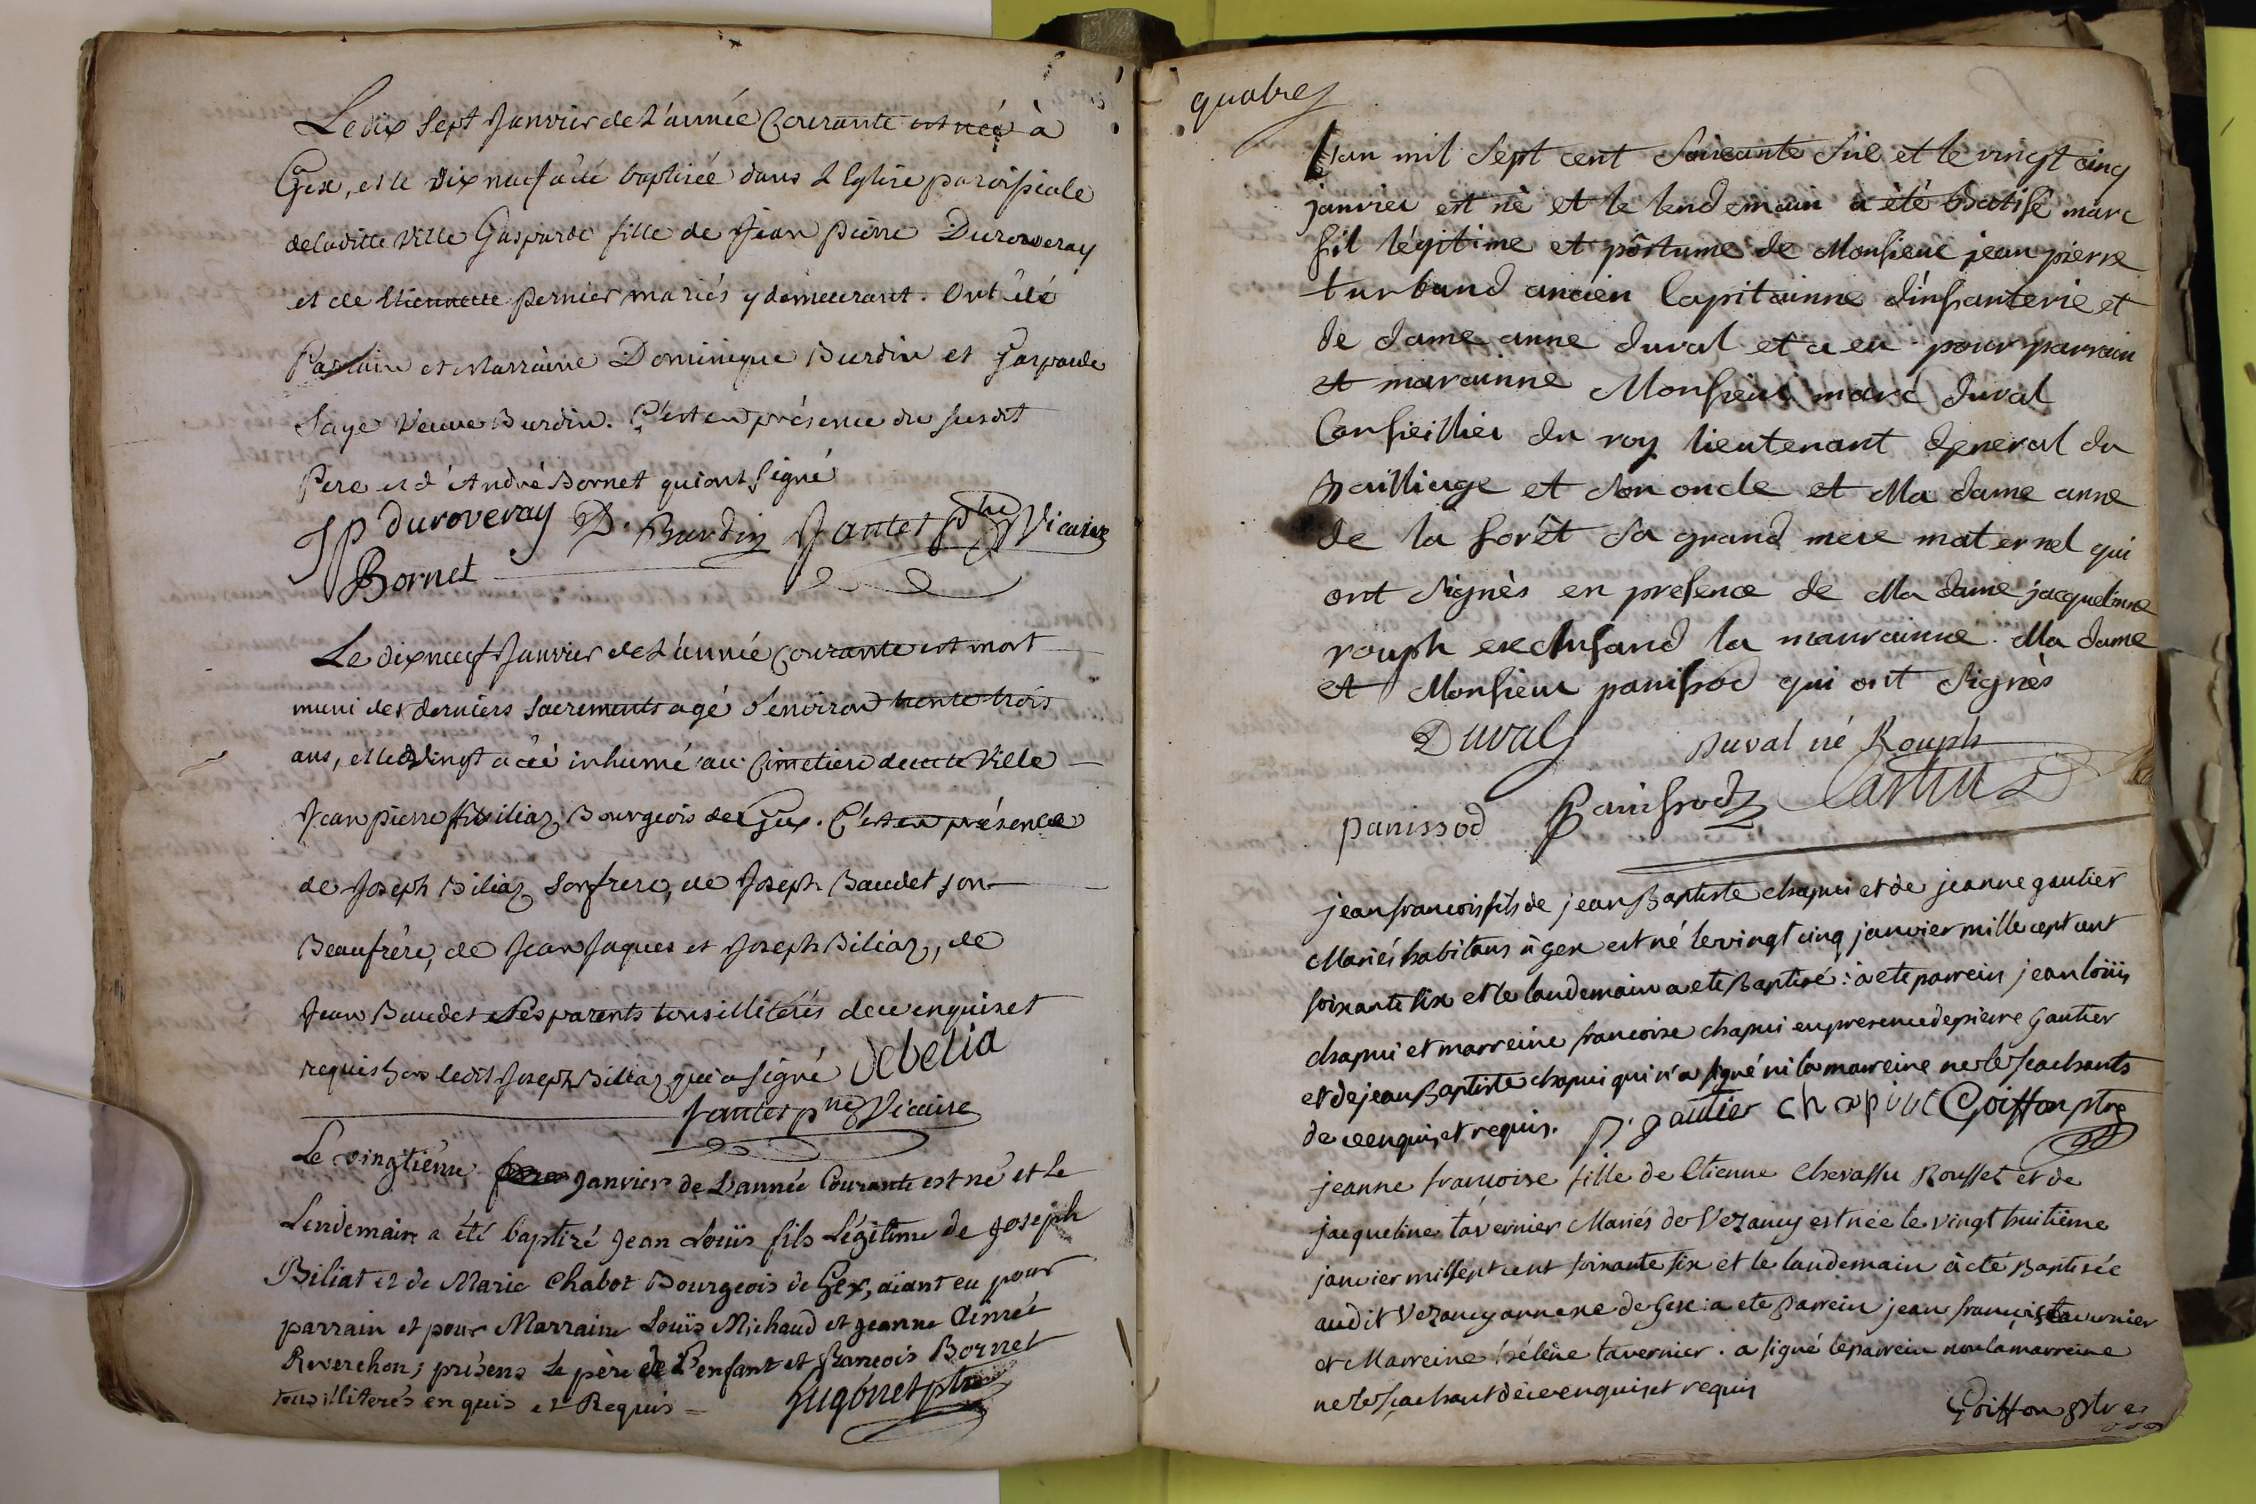 Le dix Sept Janvier de L'année Courante est née à
Gex, et le dix neuf a été baptisée dans L'Eglise paroissiale
de ladite Ville Gasparde fille de Jean pierre Duroveray
et de Etiennette pernier mariés y demeurant. Ont été
Parrain et Marraine Dominique Burdin et Gasparde
Saye Veuve Burdin. C'est en présence du susdit
Pere et d'André Bornet qui ont signé
JP duroveray D. Burdin Jantet ptre Vicaire
Bornet
Le dix neuf Janvier de L'année Courante est mort
muni des derniers Sacrements agé d'environ trente trois
ans, et le Vingt a été inhumé au Cimetiere de cette Ville
Jean pierre Biliaz Bourgeois de Gex. C'est en présence
de Joseph Biliaz Son frere, de Joseph Baudet son
Beaufrére, de Jean Jaques et Joseph Biliaz, de
Jean Baudet Ses parents tous illiterés de ce enquis et
requis hors ledit Joseph Billiaz qui a signé debelia
Jantet ptre Vicaire
Le vingtiéme Janvier de L'année Courante est né et Le
Lendemain a été baptizé Jean Loüis fils Légitime de Joseph
Biliat et de Marie Chabot Bourgeois de Gex, aïant eu pour
parrain et pour Marraine Loüis Michaud et Jeanne Aimée
Reverchon; présens Le père de L'enfant et françois Bornet
tous illiterés enquis et Requis =
hugonet ptre
quatre
Lan mil sept cent soixante six et le vingt cinq
janvier est né et le lendemain a été batisé marc
fil légitime et pôstume de Monsieur jean pierre
turband ancien Capitainne d'infanterie et
de dame anne duval et a eu pour parrain
et marainne Monsieur marc duval
Conseillier du roy lieutenant general du
Bailliage et son oncle et Ma dame anne
de la forêt sa grand mere maternel qui
ont signès en presence de Ma dame jacquelinne
rouph excusand la marrainne. Ma dame
et Monsieur panissod qui ont signès
Duval Duval né Rouph
panissod Panissod Castin
jean francois fils de jean Baptiste chapui et de jeanne gautier
Mariés habitans à gex est né le vingt cinq janvier mille cept cent
soixante six et le landemain a ete Baptisé: a ete parrein jean loüis
chapui et marreine francoise chapui en presence de pierre Gautier
et de jean Baptiste chapui qui n'a signé ni la marreine ne le scachants
de ce enquis et requis. p. gautier chapuit Goiffon ptre
jeanne francoise fille de Etienne Chevassu Rousset et de
jacqueline tavernier Mariés de Vezancy est née le vingt huitième
janvier mil sept cent soixante six et le landemain à été Baptisée
audit Vezancy annexe de Gex: a ete Parrein jean françois tavernier
et Marreine hélène tavernier. a signé le parrein non la marreine
ne le scachant de ce enquis et requis
Goiffon ptre